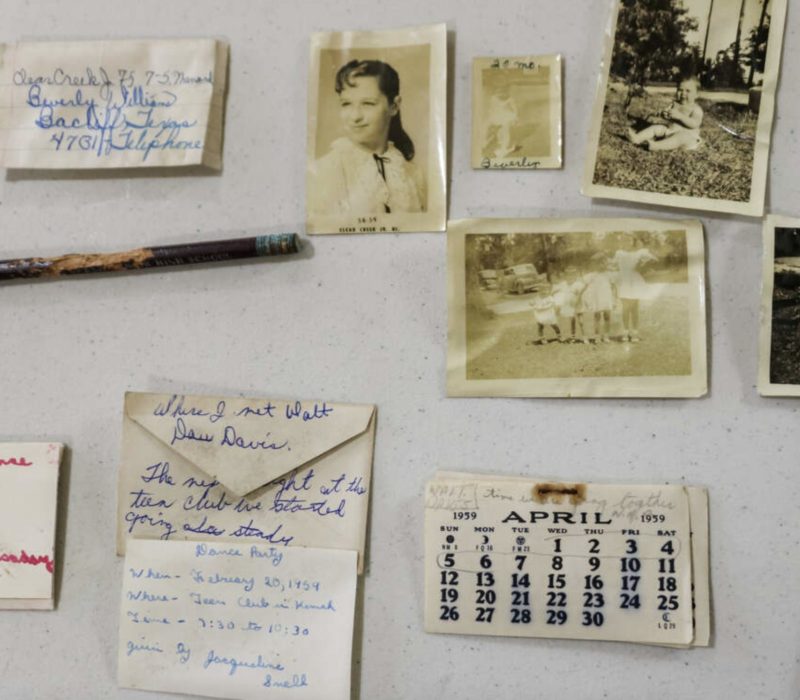 Clear Creek J. 75, 7-5,
Beverly William
Bacliff, Texas
Telephone
58-59
CLEAR CREEK JR. HI.
22 mo.
Beverly
HIGH SCHOOL
Where I met Walt
Dau Davis.
The night at the
teen club we started
going also steady
Dance Party
When - February 20, 1959
Where - Teen Club in Kemah
Time - 7:30 to 10:30
given by Jacqueline
Snell
time going together
1959 APRIL 1959
SUN MON TUE WED THU FRI SAT
1 2 3 4
5 6 7 8 9 10 11
12 13 14 15 16 17 18
19 20 21 22 23 24 25
26 27 28 29 30